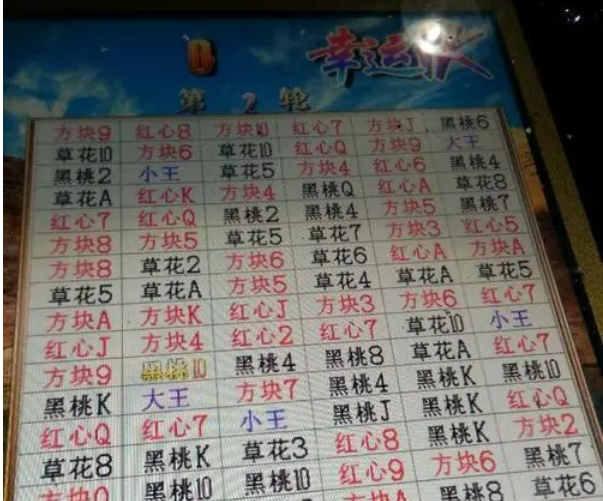 幸运
第2轮
方块9 红心8 方块10 红心7 方块J 黑桃6
草花10 方块6 草花10 红心Q 方块9 大王
黑桃2 小王 草花5 方块4 红心6 黑桃4
草花A 红心K 方块4 黑桃Q 红心A 草花8
红心7 红心Q 黑桃2 黑桃4 方块5 黑桃7
方块8 方块5 草花5 草花7 方块3 红心5
方块8 草花2 方块6 草花6 红心A 方块A
草花5 草花A 方块5 草花4 草花A 草花5
方块A 方块K 红心J 方块3 方块6 红心7
红心J 方块4 红心2 红心7 草花10 小王
方块9 黑桃10 黑桃4 黑桃8 草花A 红心7
黑桃K 大王 方块7 黑桃4 黑桃K 黑桃10
红心Q 红心7 小王 黑桃J 黑桃K 红心Q
草花8 黑桃K 草花3 红心8 黑桃K 方块2
方块 黑桃10 黑桃10 红心9 方块6 黑桃7
方块A 黑桃8 草花6